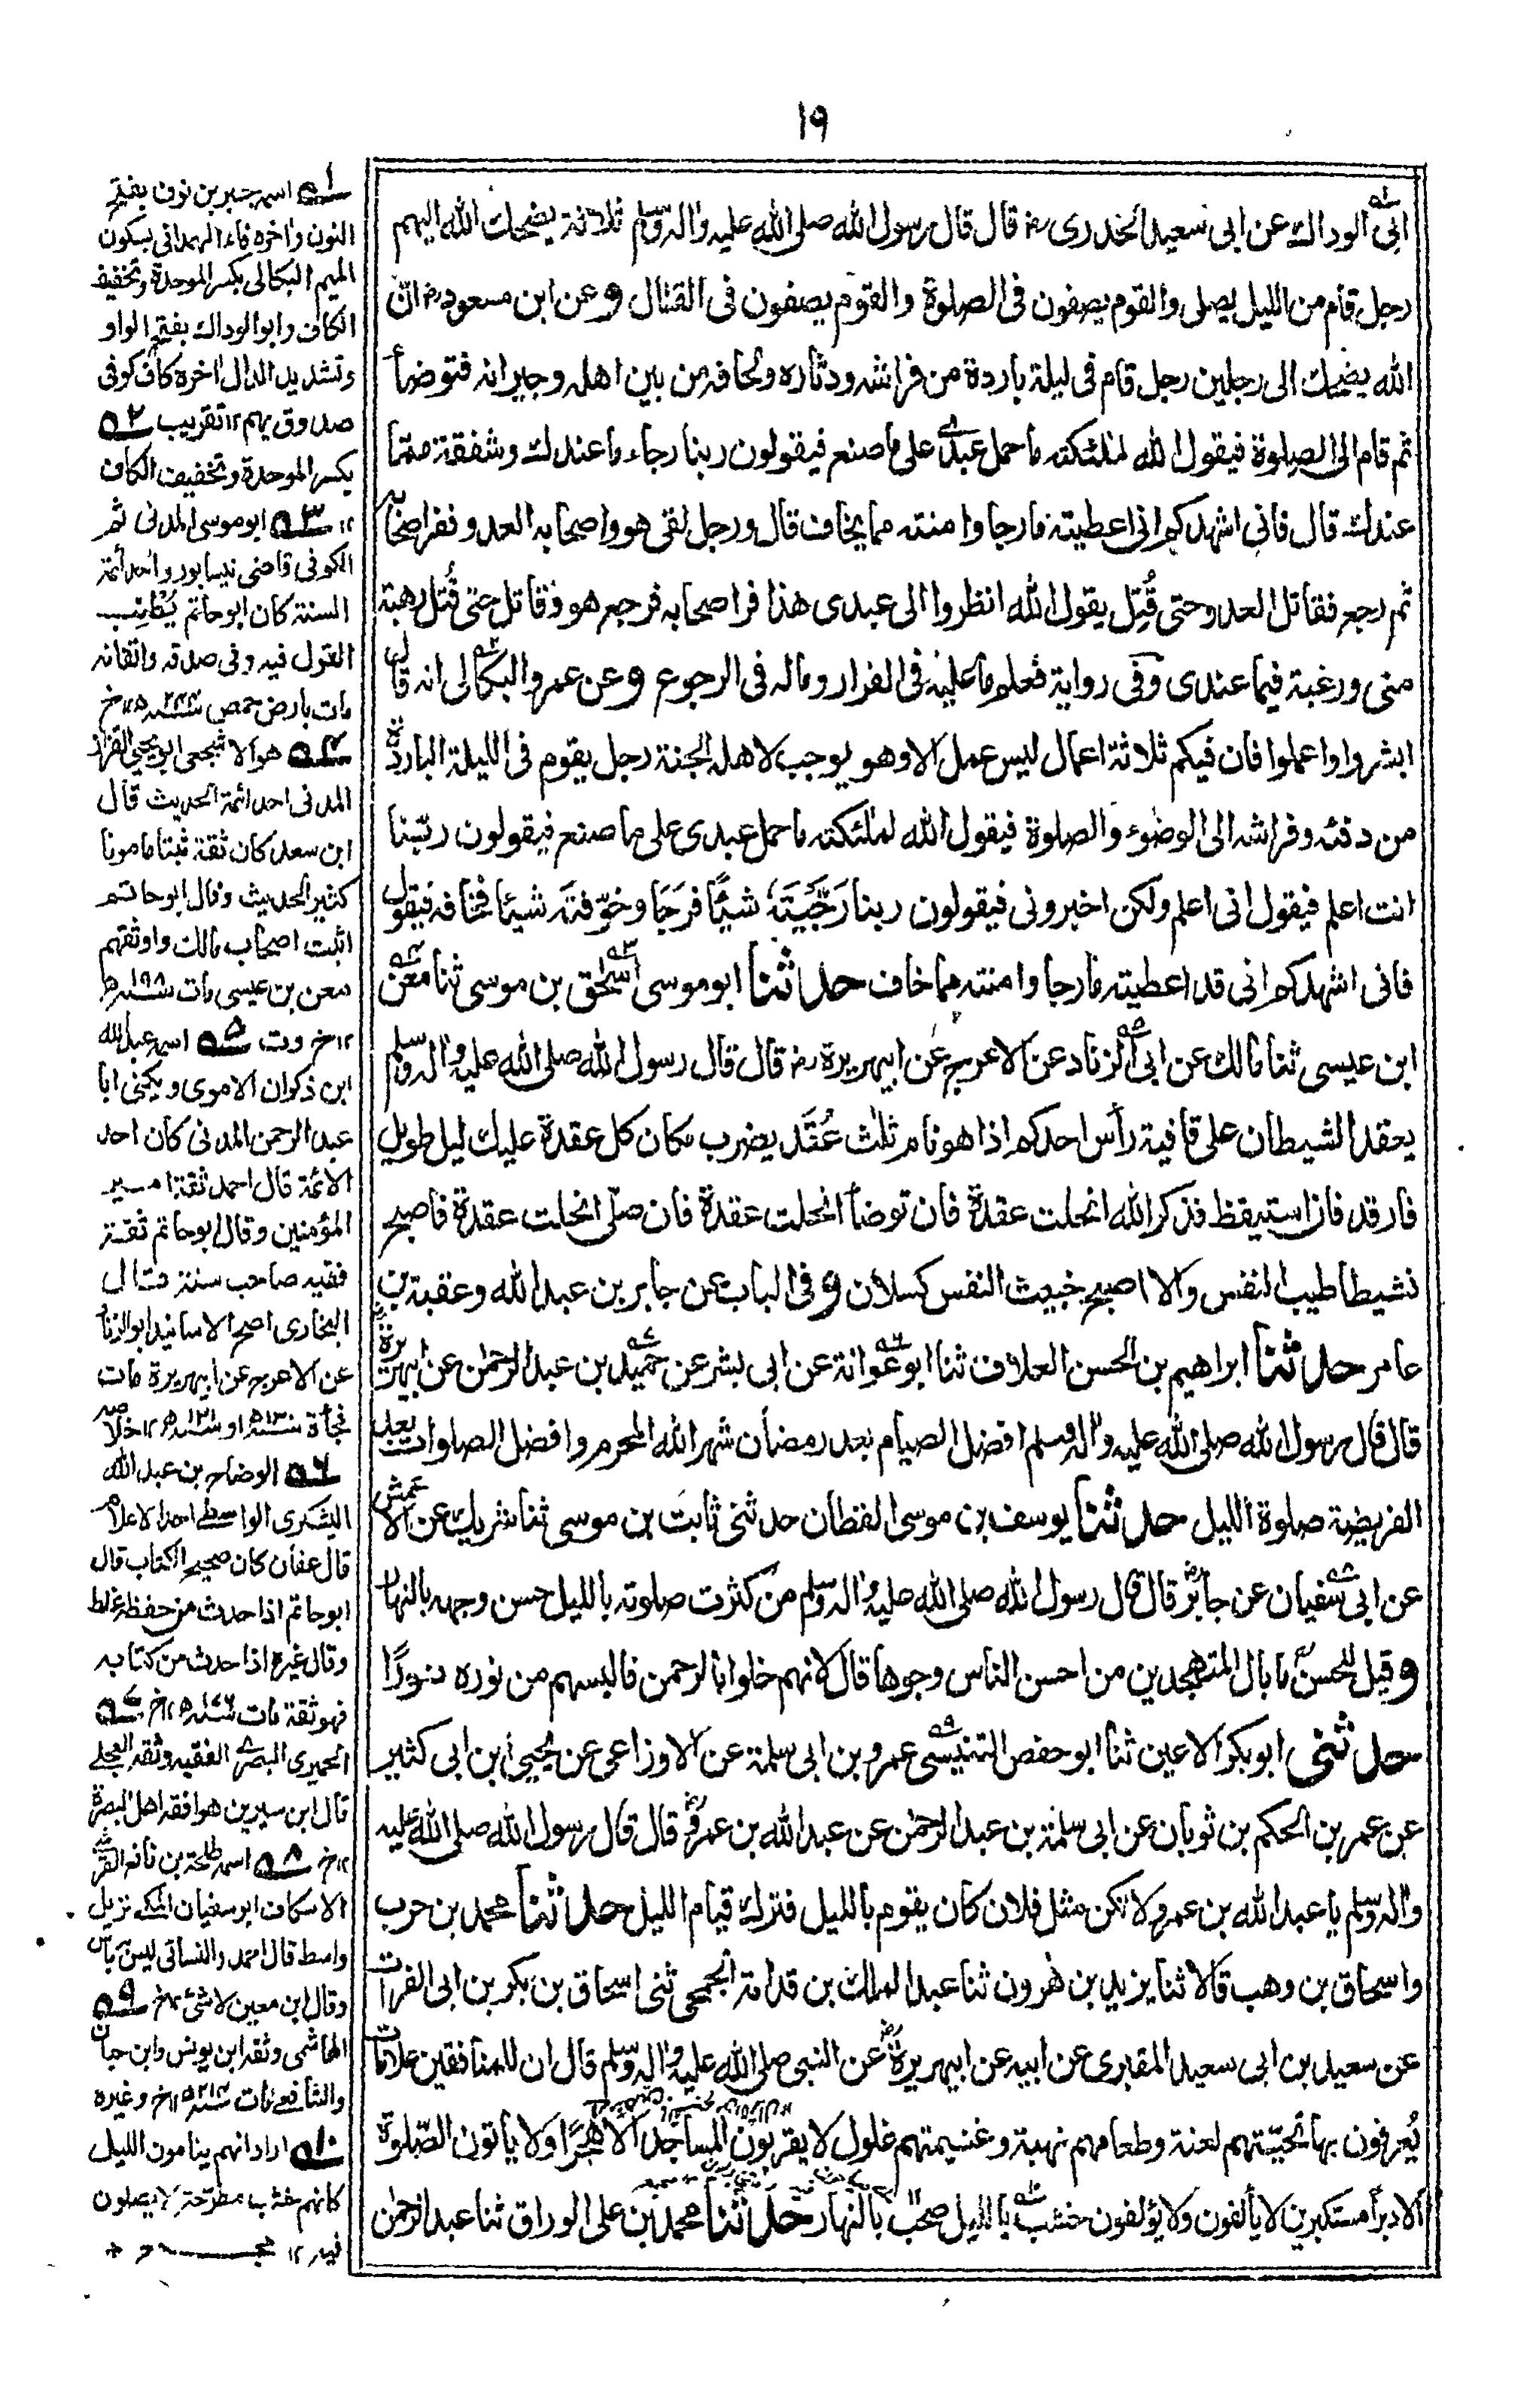 ١٩
ابى الوداك عن ابى سعيد الخدرى رض قال قال رسول الله صلى الله عليه واله وسلم ثلاثة يضحك الله اليهم
رجل قام من الليل يصلى والقوم يصفون فى الصلوة والقوم يصفون فى القتال وعن ابن مسعود رض انّ
الله يضحك الى رجلين رجل قام فى ليلة باردة من فراشه ودثاره ولحافه من بين اهله وجيرانه فتوضأ
ثم قام الى الصلوة فيقول الله لملئكته ما حمل عبدى على ما صنع فيقولون ربنا رجاء ما عندك وشفقة مما
عندك قال فانى اشهدكم انى اعطيته ما رجا وامنته مما يخاف قال ورجل لقى هو واصحابه العدو ففر اصحابه
ثم رجع فقاتل العدو حتى قُتِل يقول الله انظروا الى عبدى هذا فر اصحابه فرجع هو فقاتل حتى قُتل رهبة
منى ورغبة فيما عندى وفى رواية فعلم ما عليه فى الفرار وماله فى الرجوع وعن عمرو البكالى انه قال
ابشروا واعملوا فان فيكم ثلاثة اعمال ليس عمل الا وهو يوجب لاهله الجنة رجل يقوم فى الليلة الباردة
من دفئه وفراشه الى الوضوء والصلوة فيقول الله لملئكته ما حمل عبدى على ما صنع فيقولون ربّنا
انت اعلم فيقول انى اعلم ولكن اخبرونى فيقولون ربنا رَجَّيتَه شيئًا فرَجَا وخوّفتَه شيئا فخافه فيقول
فانى اشهدكم انى قد اعطيته ما رجا وامنته مما خاف حدثنا ابو موسى اسحق بن موسى ثنا معن
ابن عيسى ثنا مالك عن ابى الزناد عن الاعرج عن ابيهريرة رض قال قال رسول الله صلى الله عليه واله وسلم
يعقد الشيطان على قافية رأس احدكم اذا هو نام ثلث عُقَد يضرب مكان كل عقدة عليك ليل طويل
فارقد فان استيقظ فذكر الله انحلت عقدة فان توضأ انحلت عقدة فان صلّى انحلت عقدة فاصبح
نشيطا طيب النفس والا اصبح خبيث النفس كسلان وفى الباب عن جابر بن عبد الله وعقبة بن
عامر حدثنا ابراهيم بن الحسن العلاف ثنا ابو عوانة عن ابى بشر عن حميد بن عبد الرحمٰن عن ابيهريرة
قال قال رسول الله صلى الله عليه واله وسلم افضل الصيام بعد رمضان شهر الله المحرم وافضل الصلوات بعد
الفريضة صلوة الليل حدثنا يوسف بن موسى القطان حدثنى ثابت بن موسى ثنا شريك عن الاعمش
عن ابى سفيان عن جابر قال قال رسول الله صلى الله عليه واله وسلم من كثرت صلوته بالليل حسن وجهه بالنهار
وقيل للحسن ما بال المتهجدين من احسن الناس وجوها قال لانهم خلوا بالرحمن فالبسهم من نوره نورًا
حدثنى ابو بكر الاعين ثنا ابو حفص التنيسى عمرو بن ابى سلمة عن الاوزاعى عن يحيى ابن ابى كثير
عن عمر بن الحكم بن ثوبان عن ابى سلمة بن عبد الرحمٰن عن عبد الله بن عمرو قال قال رسول الله صلى الله عليه
واله وسلم يا عبد الله بن عمرو لا تكن مثل فلان كان يقوم بالليل فترك قيام الليل حدثنا محمد بن حرب
واسحاق بن وهب قالا ثنا يزيد بن هٰرون ثنا عبد الملك بن قدامة الجمحى ثنى اسحاق بن بكر بن ابى الفرات
عن سعيد بن ابى سعيد المقبرى عن ابيه عن ابيهريرة عن النبى صلى الله عليه واله وسلم قال ان للمنافقين علامات
يُعرفون بها تحيّتهم لعنة وطعامهم نهبة وغنيمتهم غلول لا يقربون المساجد الا هَجْرًا ولا ياتون الصّلوة
الا دبرًا مستكبرين لا يألفون ولا يؤلفون خشب بالليل صخب بالنهار حدثنا محمد بن على الوراق ثنا عبد الرحمٰن
١ه اسمه جبر بن نوف بفتح
النون واخره فاء الهمدانى بسكون
الميم البكالى بكسر الموحدة وتخفيف
الكاف وابو الوداك بفتح الواو
وتشديد الدال اخره كاف كوفى
صدوق يهم ١٢ تقريب ٢ه
بكسر الموحدة وتخفيف الكاف
١٢ ٣ه ابو موسى المدنى ثم
الكوفى قاضى نيسابور واحد أئمة
السنة كان ابو حاتم يُطنِب
القول فيه وفى صدقه واتقانه
مات بارض حمص سنة ٢٤٤ه ١٢ خ
٤ه هو الاشجعى ابو يحيى القزاز
المدنى احد ائمة الحديث قال
ابن سعد كان ثقة ثبتا مامونا
كثير الحديث وقال ابو حاتم
اثبت اصحاب مالك واوثقهم
معن بن عيسى مات سنة ١٩٨ه
١٢ خ وت ٥ه اسمه عبد الله
ابن ذكوان الاموى ويكنى ابا
عبد الرحمن المدنى كان احد
الائمة قال احمد ثقة امير
المؤمنين وقال ابو حاتم ثقة
فقيه صاحب سنة قال
البخارى اصح الاسانيد ابو الزناد
عن الاعرج عن ابيهريرة مات
فجأة سنة ١٣٠ه او سنة ١٣١ه ١٢ خلاصه
٦ه الوضاح بن عبد الله
اليشكرى الواسطى احد الاعلام
قال عفان كان صحيح الكتاب قال
ابو حاتم اذا حدث من حفظه غلط
وقال غيره اذا حدث من كتابه
فهو ثقة مات سنة ١٧٦ه ١٢ خ ٧ه
الحميرى البصرى الفقيه وثقه العجلى
قال ابن سيرين هو افقه اهل البصرة
١٢ خ ٨ه اسمه طلحة بن نافع القرشى
الاسكاف ابو سفيان المكى نزيل
واسط قال احمد والنسائى ليس به بأس
وقال ابن معين لا شئ ١٢ خ ٩ه
الهاشمى وثقه ابن يونس وابن حبان
والشافعى مات سنة ٢١٤ه ١٢ خ وغيره
١٠ه اراد انهم ينامون الليل
كانهم خشب مطرّحة لا يصلون
فيه ١٢